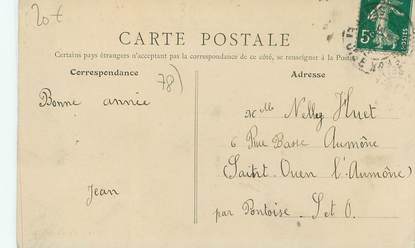 20t
CARTE POSTALE
Certains pays étrangers n'acceptant pas la correspondance de ce côté, se renseigner à la Poste
Correspondance
Adresse
78)
Bonne année
Jean
Mlle Nelly Huet
6 Rue Basse Aumône
(Saint Ouen l'Aumône)
par Pontoise. S et O.
5c